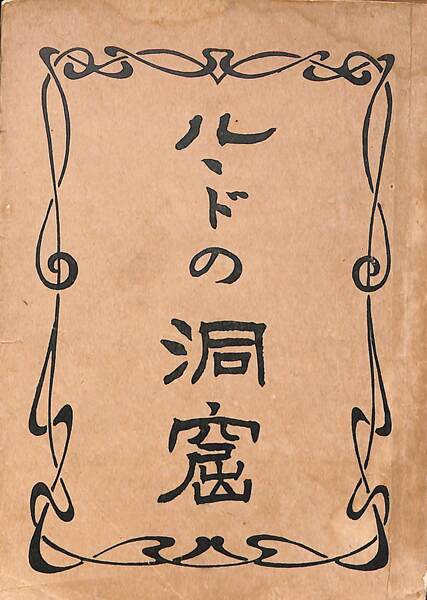 ルヽドの洞窟